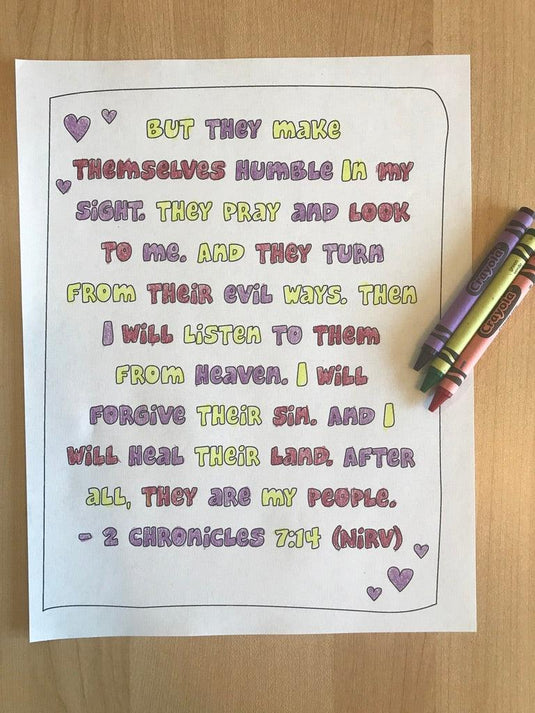 But they make
themselves humble in my
sight. They pray and look
to me. And they turn
from their evil ways. Then
I will listen to them
from heaven. I will
forgive their sin. And I
will heal their land. After
all, they are my people.
- 2 Chronicles 7:14 (NIRV)
Crayola
Crayola